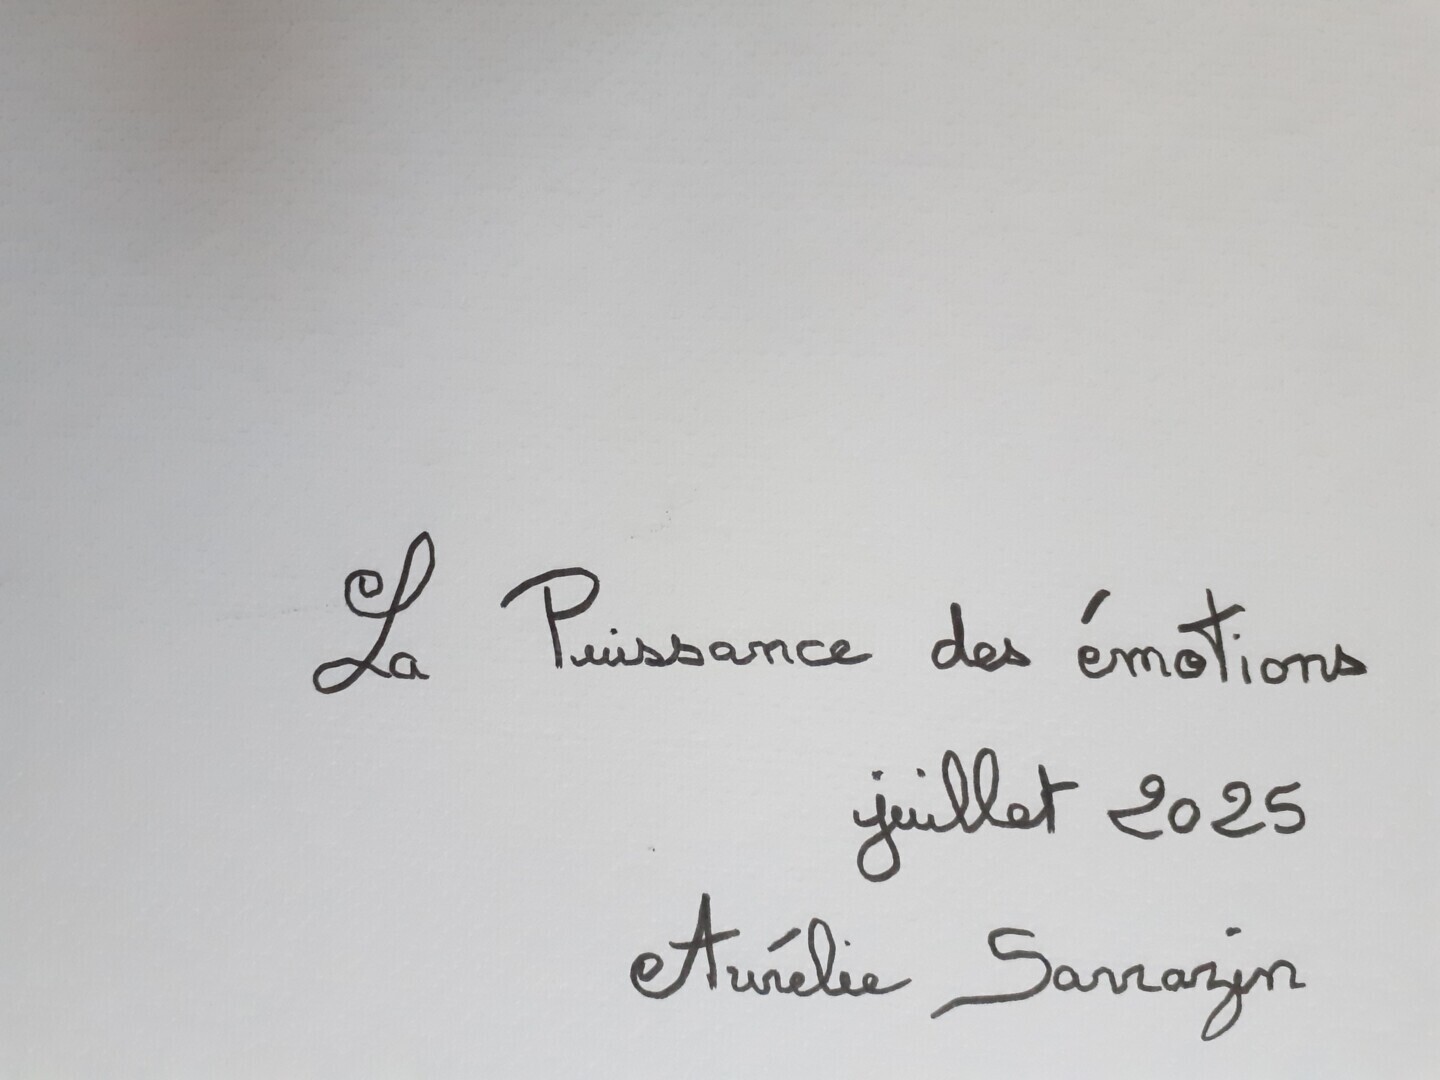 La Puissance des émotions
juillet 2025
Aurélie Sarrazin